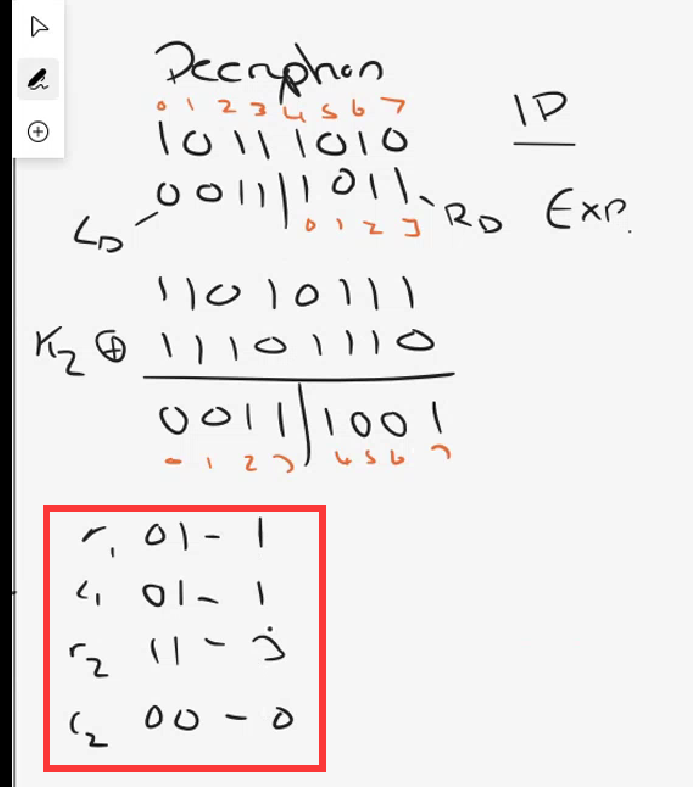 Decryption
0 1 2 3 4 5 6 7
10111010
IP
0011|1011
LD
RD
Exp.
0 1 2 3
11010111
K2 ⊕ 11101110
0011|1001
0 1 2 3 4 5 6 7
r1 01 - 1
c1 01 - 1
r2 11 - 3
c2 00 - 0